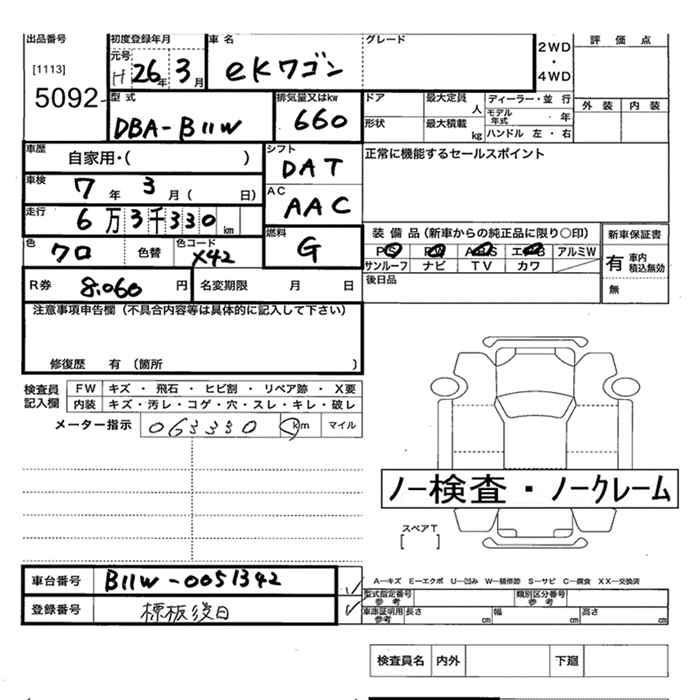 出品番号 初度登録年月 車名 グレード 評価点
元号
H26年3月 eKワゴン 2WD・4WD
[1113]
5092
型式 排気量又はkw ドア 最大定員 人 ディーラー・並行 外装 内装
DBA-B11W 660 形状 最大積載 kg モデル年式 年
ハンドル 左・右
車歴 シフト 正常に機能するセールスポイント
自家用・( ) DAT
車検 AC
7年3月( 日) AAC
走行
6万3千330km
色 色替 色コード 燃料 装備品(新車からの純正品に限り○印) 新車保証書
クロ X42 G PS PW ABS エアB アルミW 有 車内積込無効
サンルーフ ナビ TV カワ
R券 8,060円 名変期限 月 日 後日品 無
注意事項申告欄(不具合内容等は具体的に記入して下さい)
修復歴 有 (箇所 )
検査員記入欄 FW キズ・飛石・ヒビ割・リペア跡・X要
内装 キズ・汚レ・コゲ・穴・スレ・キレ・破レ
メーター指示 063330 km マイル
ノー検査・ノークレーム
スペアT
[ ]
車台番号 B11W-0051342
A―キズ E―エクボ U―凹み W―補修跡 S―サビ C―腐食 XX―交換済
型式指定番号 参考 類別区分番号 参考
登録番号 標板後日 車庫証明用 参考 長さ cm 幅 cm 高さ cm
検査員名 内外 下廻